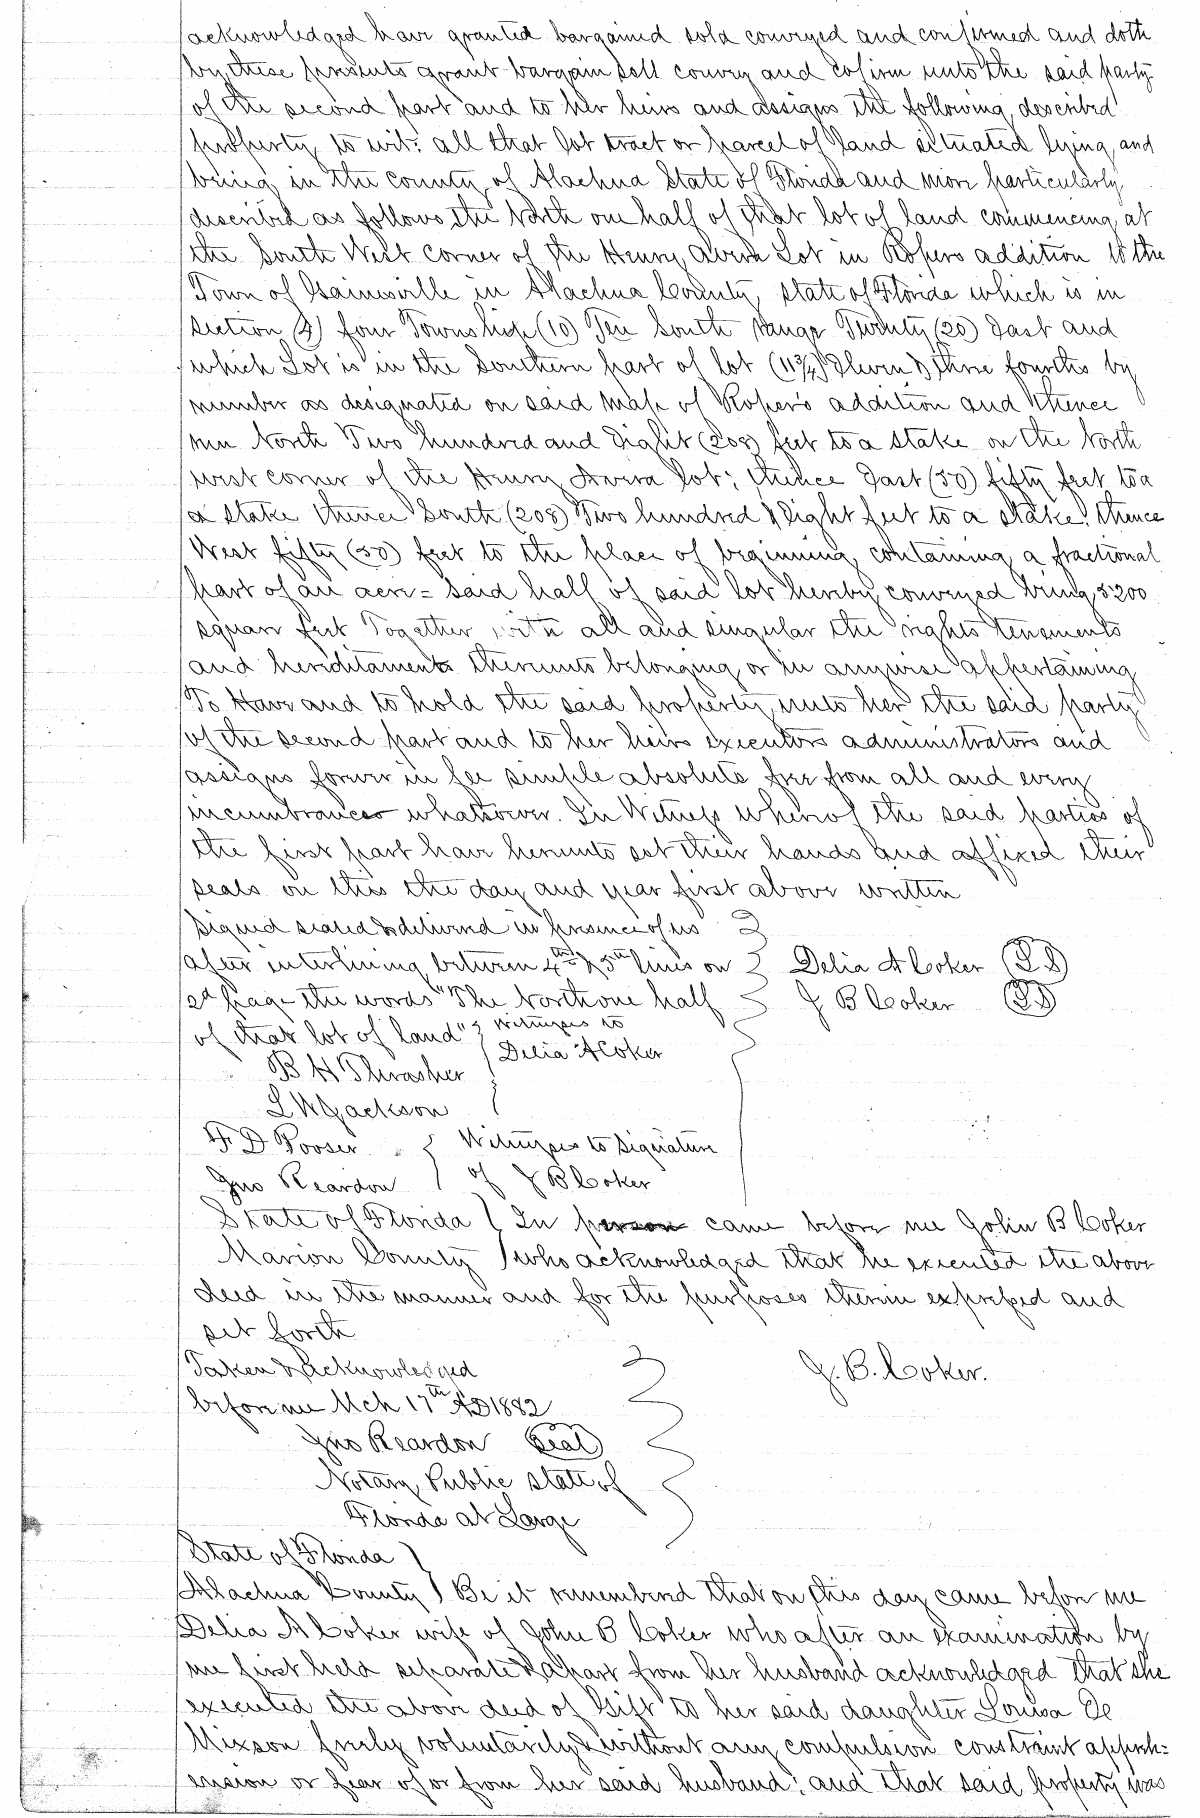 acknowledged have granted bargained sold conveyed and confirmed and doth
by these presents grant bargain sell convey and cofirm unto the said party
of the second part and to her heirs and assigns the following described
property to wit: all that lot tract or parcel of land situated lying and
being in the county of Alachua State of Florida and more particularly
described as follows the North one half of that lot of land commencing at
the South West corner of the Henry Avera Lot in Ropers addition to the
Town of Gainesville in Alachua County, state of Florida which is in
section (4) four Township (10) Ten South range Twenty (20) East and
which Lot is in the Southern part of lot (11 3/4) Eleven & three fourths by
number as designated on said map of Roper's addition and thence
run North Two hundred and Eight (208) feet to a stake on the North
west corner of the Henry Avera lot; thence East (50) fifty feet to a
a stake thence South (208) Two hundred & Eight feet to a stake: thence
West fifty (50) feet to the place of beginning containing a fractional
part of an acre = said half of said lot hereby conveyed being 5200
square feet Together with all and singular the rights tenements
and hereditaments thereunto belonging or in anywise appertaining
To Have and to hold the said property unto her the said party
of the second part and to her heirs executors administrators and
assigns forever in fee simple absolute free from all and every
incumbrances whatsoever. In Witness whereof the said parties of
the first part have hereunto set their hands and affixed their
seals on this the day and year first above written
Signed sealed & delivered in presence of us
after interlining between 4th & 5th lines on Delia A Coker (L.S)
2d page the words "The North one half J B Coker (L.S)
of that lot of land" Witnesses to
Delia A Coker
B H Thrasher
L W Jackson
F D Pooser Witnesses to Signature
Jno Reardon of J B Coker
State of Florida } In person came before me John B Coker
Marion County } who acknowledged that he executed the above
deed in the manner and for the purposes therein expressed and
set forth
Taken & Acknowledged J. B. Coker.
before me Mch 17th AD 1882
Jno Reardon (Seal)
Notary Public state of
Florida at Large
State of Florida }
Alachua County } Be it remembered that on this day came before me
Delia A Coker wife of John B Coker who after an examination by
me first held separate & apart from her husband acknowledged that she
executed the above deed of Gift to her said daughter Louisa
Mixson freely voluntarily & without any compulsion constraint appreh=
ension or fear of or from her said husband: and that said property was